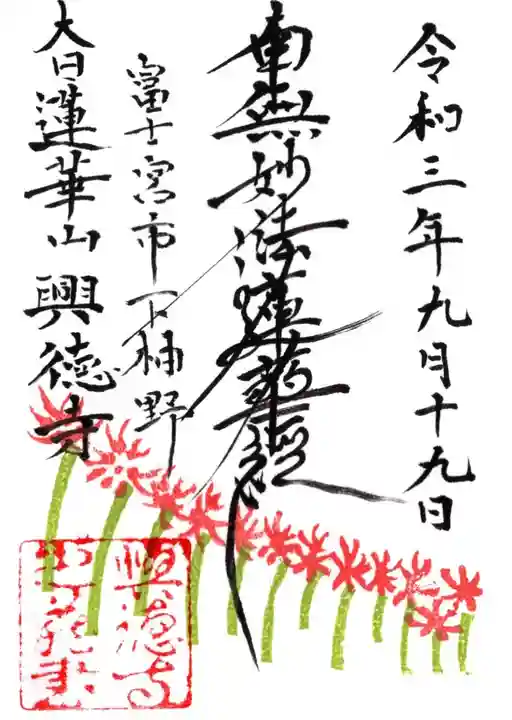 令和三年九月十九日
南無妙法蓮華経
富士宮市下柚野
大日蓮華山興徳寺
興徳寺